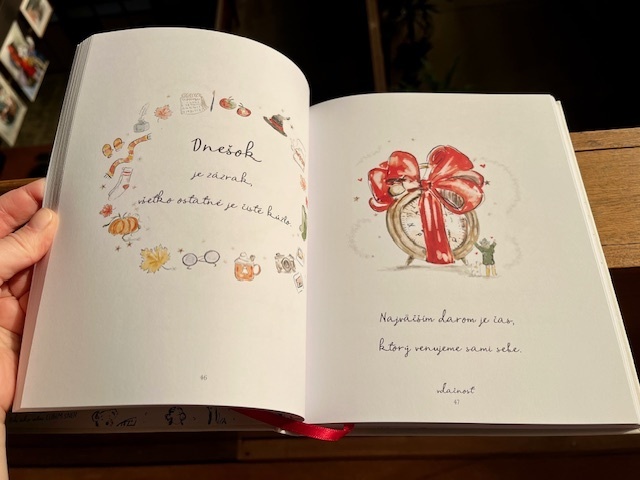 Dnešok
je zázrak,
všetko ostatné je čisté kúzlo.
46
Najväčším darom je čas,
ktorý venujeme sami sebe.
vďačnosť
47